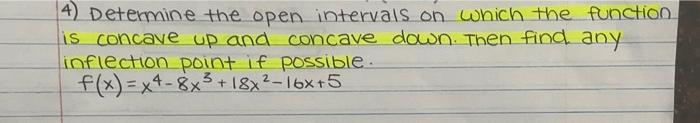 4) Determine the open intervals on which the function
is concave up and concave down. Then find any
inflection point if possible.
f(x)=x⁴-8x³+18x²-16x+5